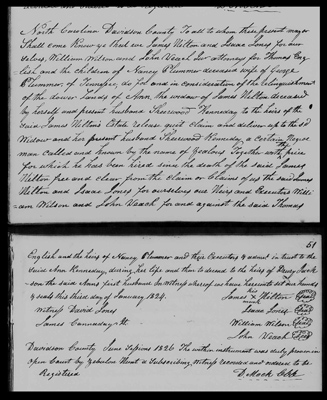 North Carolina Davidson County To all to whom these presents may
Shall come Know ye that we James Helton and Isaac Jones for our
selves, William Wilson and John Veach for attorneys for Thomas Eng
lish and the children of Nancy Plummer deceased wife of George
Plummer, of Tennessee, do for and in consideration of the relinquishment
of the dower Lands of Ann the widow of James Helton deceased
by herself and present husband Sherwood Kennedy to the heirs of the
said James Helton's Estate release quit claim and deliver up to the sd
Widow and her present husband Sherwood Kennedy, a certain Negro
man called and known by the name of Zealous Together with price
for which he has been hired since the death of the said James
Helton free and clear from the claim or claims of us the said James
Helton and Isaac Jones for ourselves our Heirs and Executors Willi
am Wilson and John Veach for and against the said Thomas
51
English and the heirs of Nancy Plummer and their Executors & admrs in trust to the
said Ann Kennedy, during her life and then to descend to the heirs of
son the said Anns first husband In witness whereof we have hereunto set our hands
& seals this third day of January 1824.
his
James X Helton Seal
mark
Witness David Jones
Isaac Jones Seal
James
William Wilson Seal
John Veach Seal
Davidson County June Sessions 1826 The within instrument was duly proven in
open Court by Zebulon Hunt a Subscribing Witness recorded and ordered to be
Registered
D Mock Clk